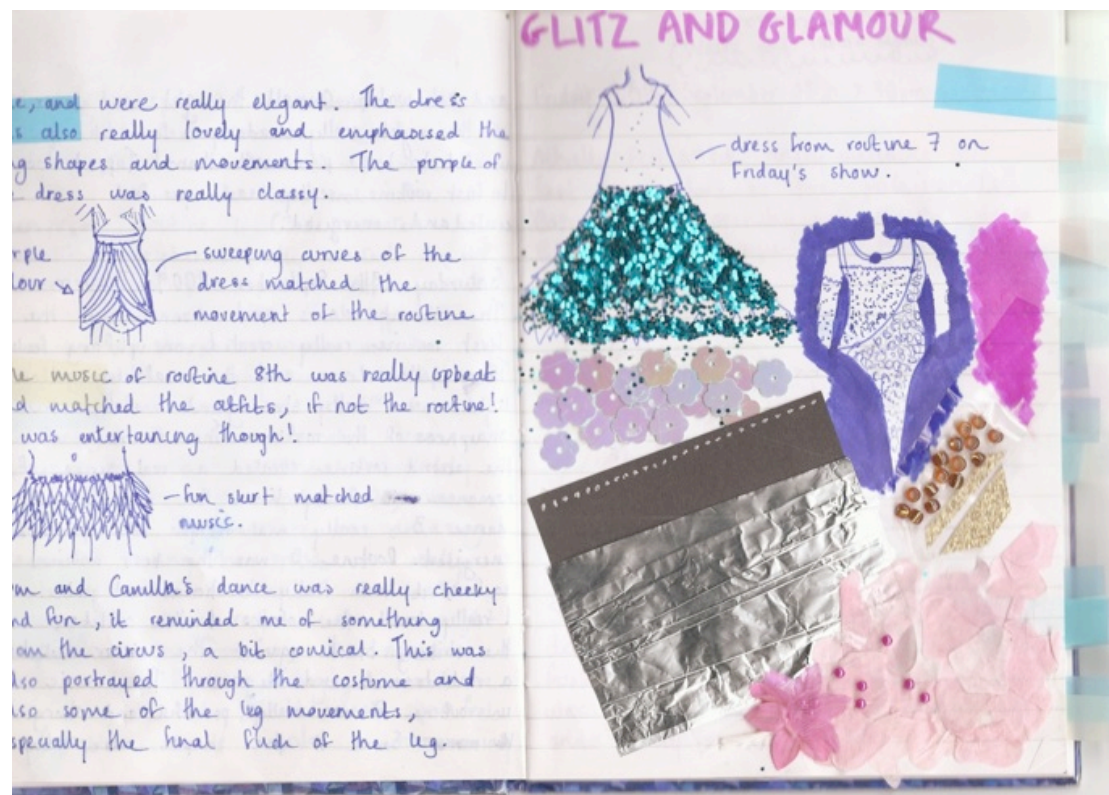 e, and were really elegant. The dress
s also really lovely and emphasised the
g shapes and movements. The purple of
dress was really classy.
rple
lour
sweeping curves of the
dress matched the
movement of the routine
music of routine 8th was really upbeat
d matched the outfits, if not the routine!
was entertaining though!
fun skirt matched
music.
m and Camilla's dance was really cheeky
nd fun, it reminded me of something
om the circus - a bit comical. This was
lso portrayed through the costume and
lso some of the leg movements,
specially the final flick of the leg.
GLITZ AND GLAMOUR
dress from routine 7 on
Friday's show.